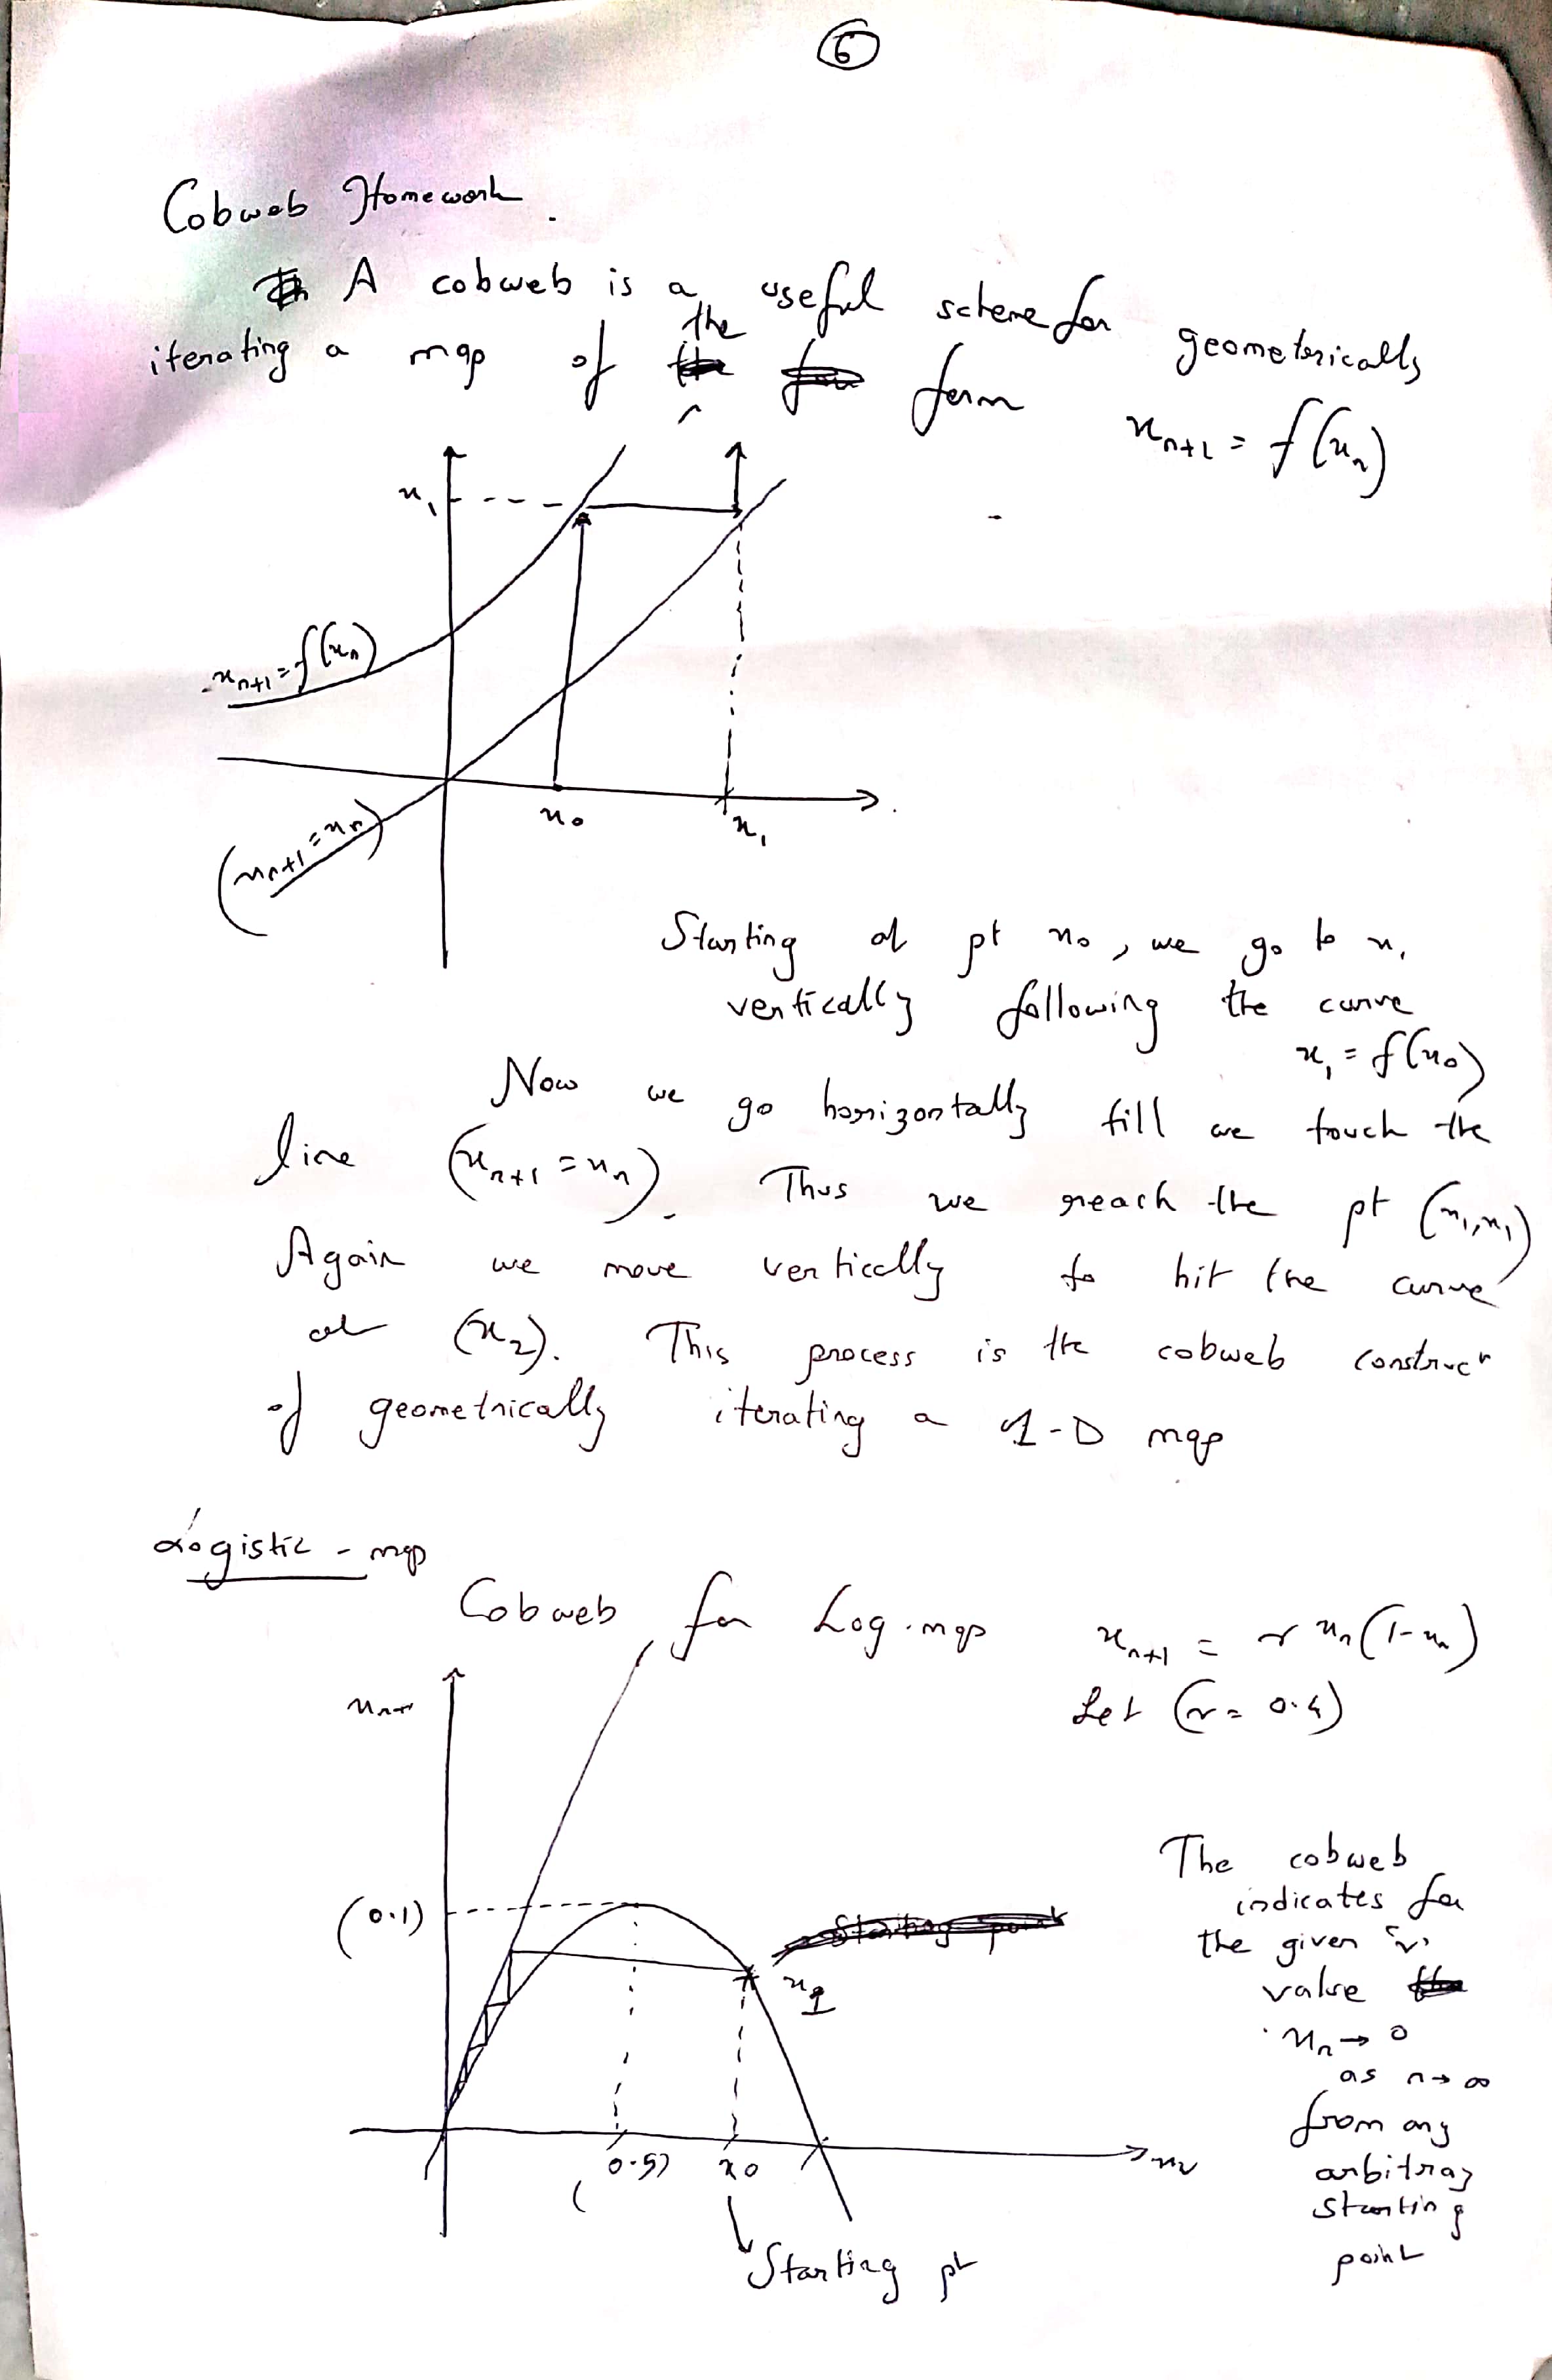 6
Cobweb Homework.
A cobweb is a useful scheme for geometrically
iterating a map of the form x_{n+1} = f(x_n)
x_1
x_{n+1} = f(x_n)
x_0
x_1
(x_{n+1} = x_n)
Starting at pt x_0, we go to x_1
vertically following the curve
x_1 = f(x_0)
Now we go horizontally till we touch the
line (x_{n+1} = x_n). Thus we reach the pt (x_1, x_1)
Again we move vertically to hit the curve
at (x_2). This process is the cobweb construct
of geometrically iterating a 1-D map
Logistic - map
Cobweb for Log. map x_{n+1} = r x_n (1-x_n)
Let (r = 0.4)
x_{n+1}
(0.1)
x_1
(0.5)
x_0
x_n
Starting pt
The cobweb
indicates for
the given 'r'
value
x_n → 0
as n → ∞
from any
arbitray
starting
point